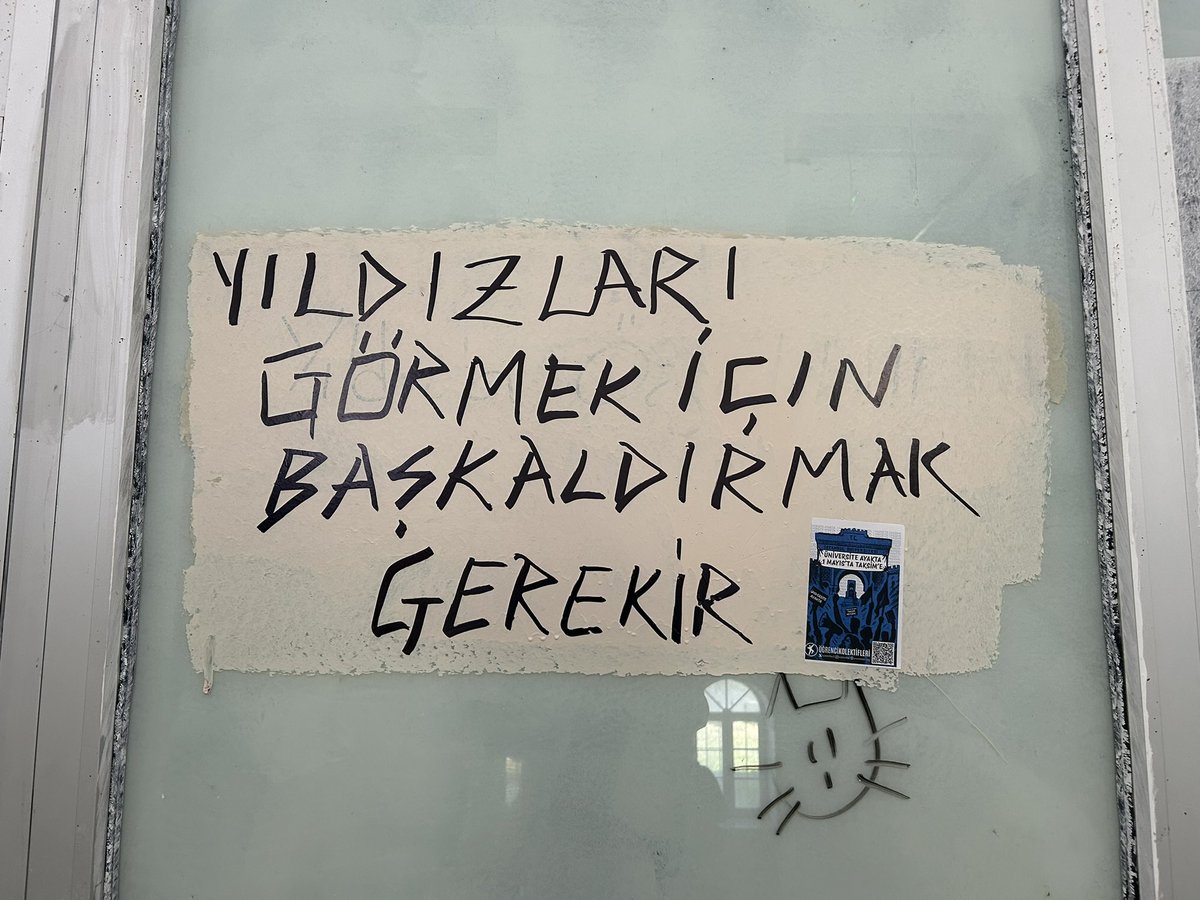 YILDIZLARI
GÖRMEK İÇİN
BAŞKALDIRMAK
GEREKİR
ÜNİVERSİTE AYAKTA
1 MAYIS'TA TAKSİM'E
ÖĞRENCİ KOLEKTİFLERİ